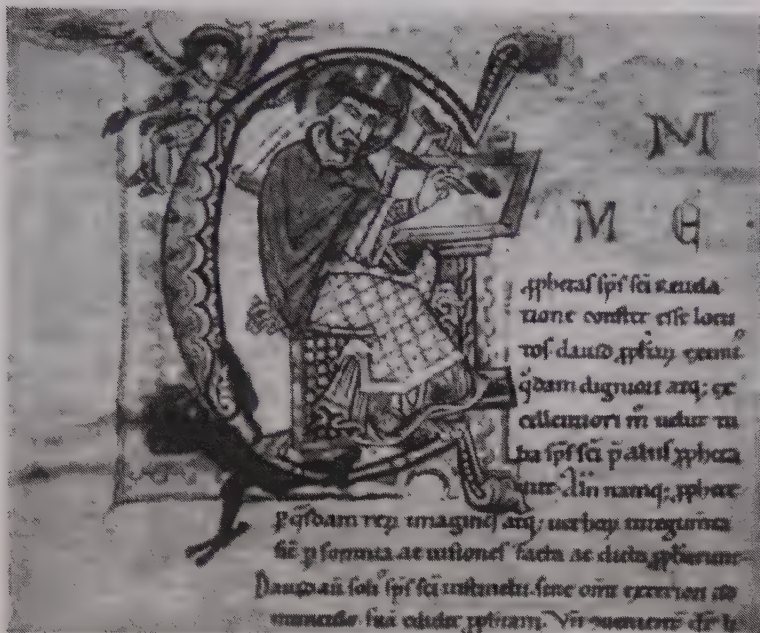 C
M
M E
ꝓphetas sp̄s sci reuela
tione constet esse locu
tos dauid ꝓph̄m eximi
q̄dam dignum atq; ex
cellentiori m̄ uelut tu
ba sp̄s sci p̄ alius ꝓpheta
Alii namq; ꝓphete
p q̄sdam reꝝ imagines atq; uerboꝝ integumta
p somnia ac uisiones facta ac dicta
Dauid au soli sp̄s sci instinctu sine omi exteriori ad
miniculo sua edidit ꝓph̄iam. Vn